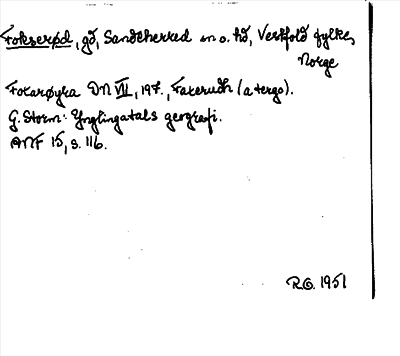 Fokserød, gd, Sandeherred sn o. hd, Vestfold fylke,
Norge
Foxarøyra DN VII, 197., Faxerudh (a tergo).
G. Storm: Ynglingatals geografi.
ANF 15, s. 116.
R.G. 1951